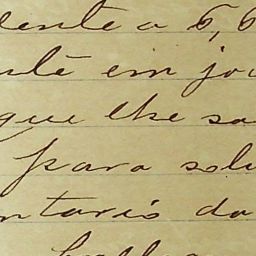 dente a 6,6
em jo
que lhe sa
para solu
ntario da